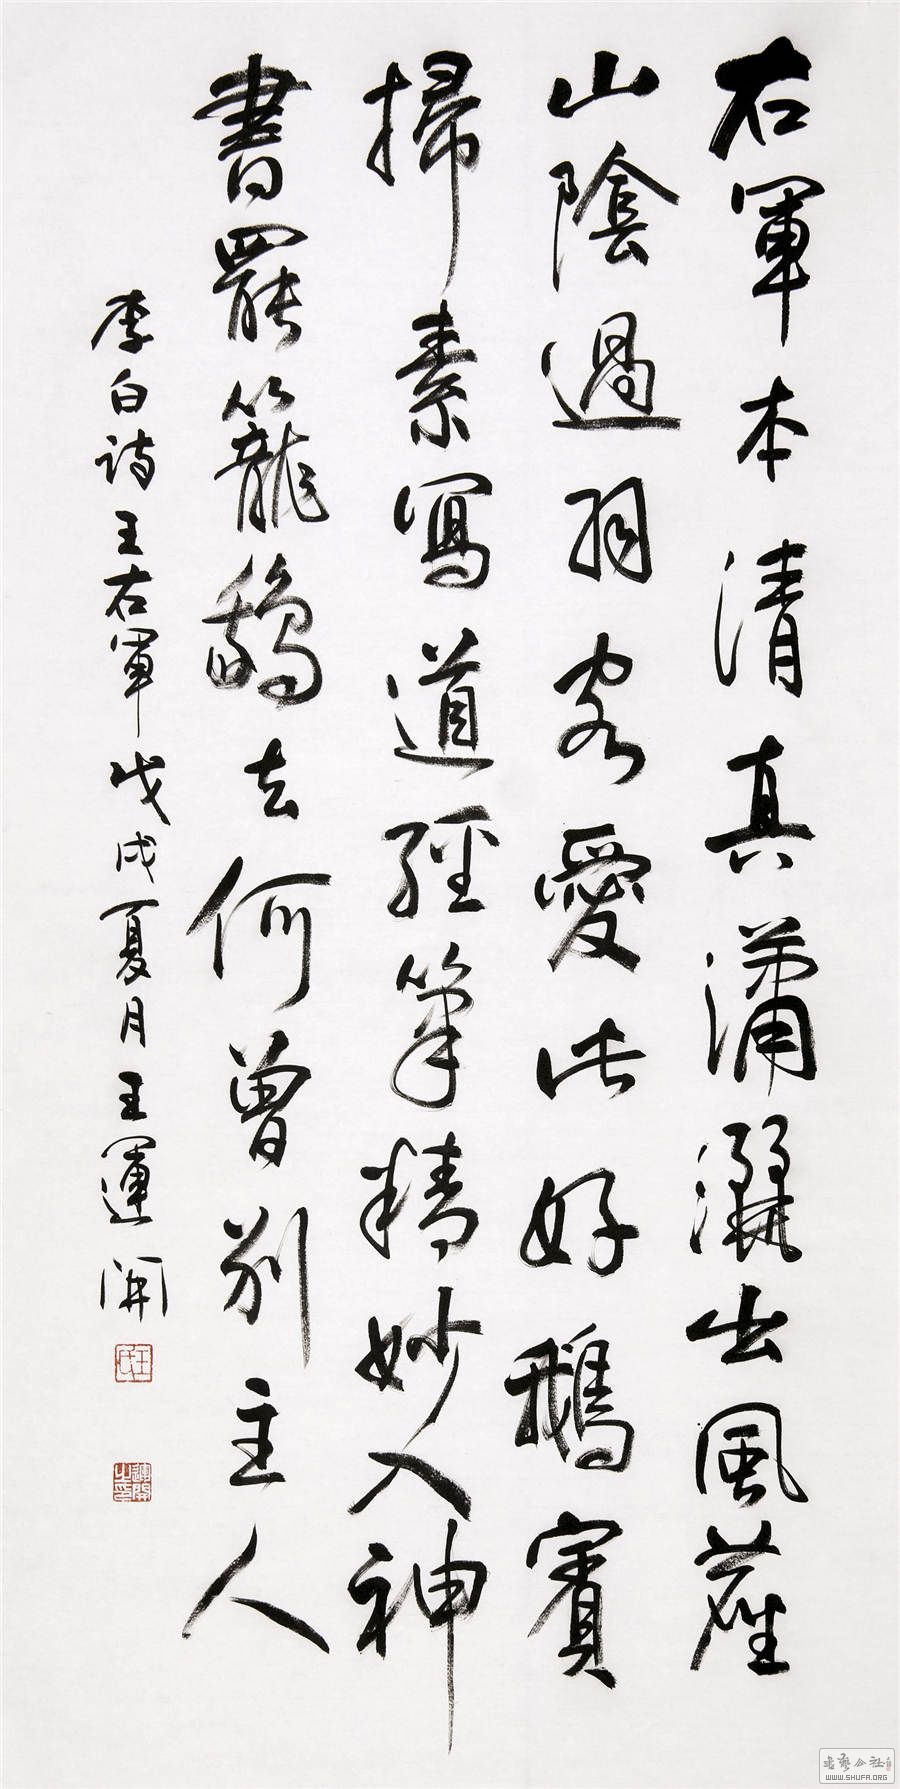 右軍本清真瀟灑出風塵
山陰過羽客愛此好鵝賓
掃素寫道經筆精妙入神
書罷籠鵝去何曾別主人
李白诗王右軍戊戌夏月王運開
王氏
運開之印
WWW.SHUFA.ORG